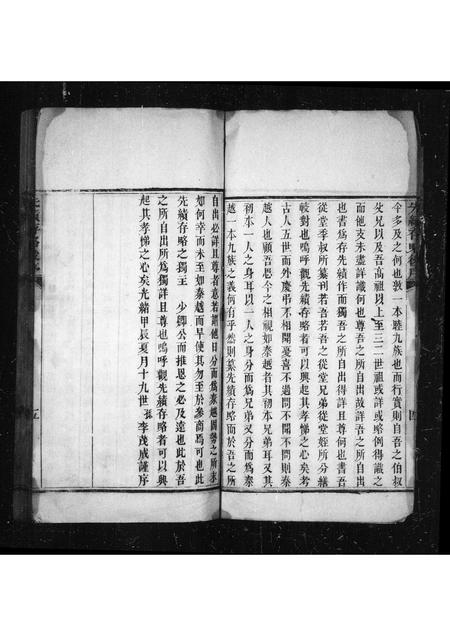 今多及之何也敦一本睦九族也而行實則自吾之伯叔
父兄以及吾高祖以上至三二世祖或詳或略例得識之
而他支未盡詳識何也尊吾之所自出故詳吾之所自出
也書為存先績作而獨吾之所自出得詳且尊何也書吾
從堂季叔所纂刊若吾若吾之從堂兄弟從堂姪所分繕
較對也嗚呼觀先績存略者可以興起其孝悌之心矣若
古人五世而外慶弔不相聞憂喜不過問不聞不問則秦
越人也顧吾思今之相視如秦越者其初本兄弟耳又其
初本一人之身耳以一人之身分而為兄弟又分而為秦
越一本九族之義何有乎然則纂先績存略而於吾之所
自出必詳且尊者意若謂他日分而為秦越固勢之所未
如何幸而未至如秦越而早使其勿至於參商焉可也此
先績存略之獨主 少鄉公而推恩之必及遠也此於吾
之所自出所為獨詳且尊也嗚呼觀先績存略者可以興
起其孝悌之心矣光緒甲辰夏月十九世孫李茂咸謹序